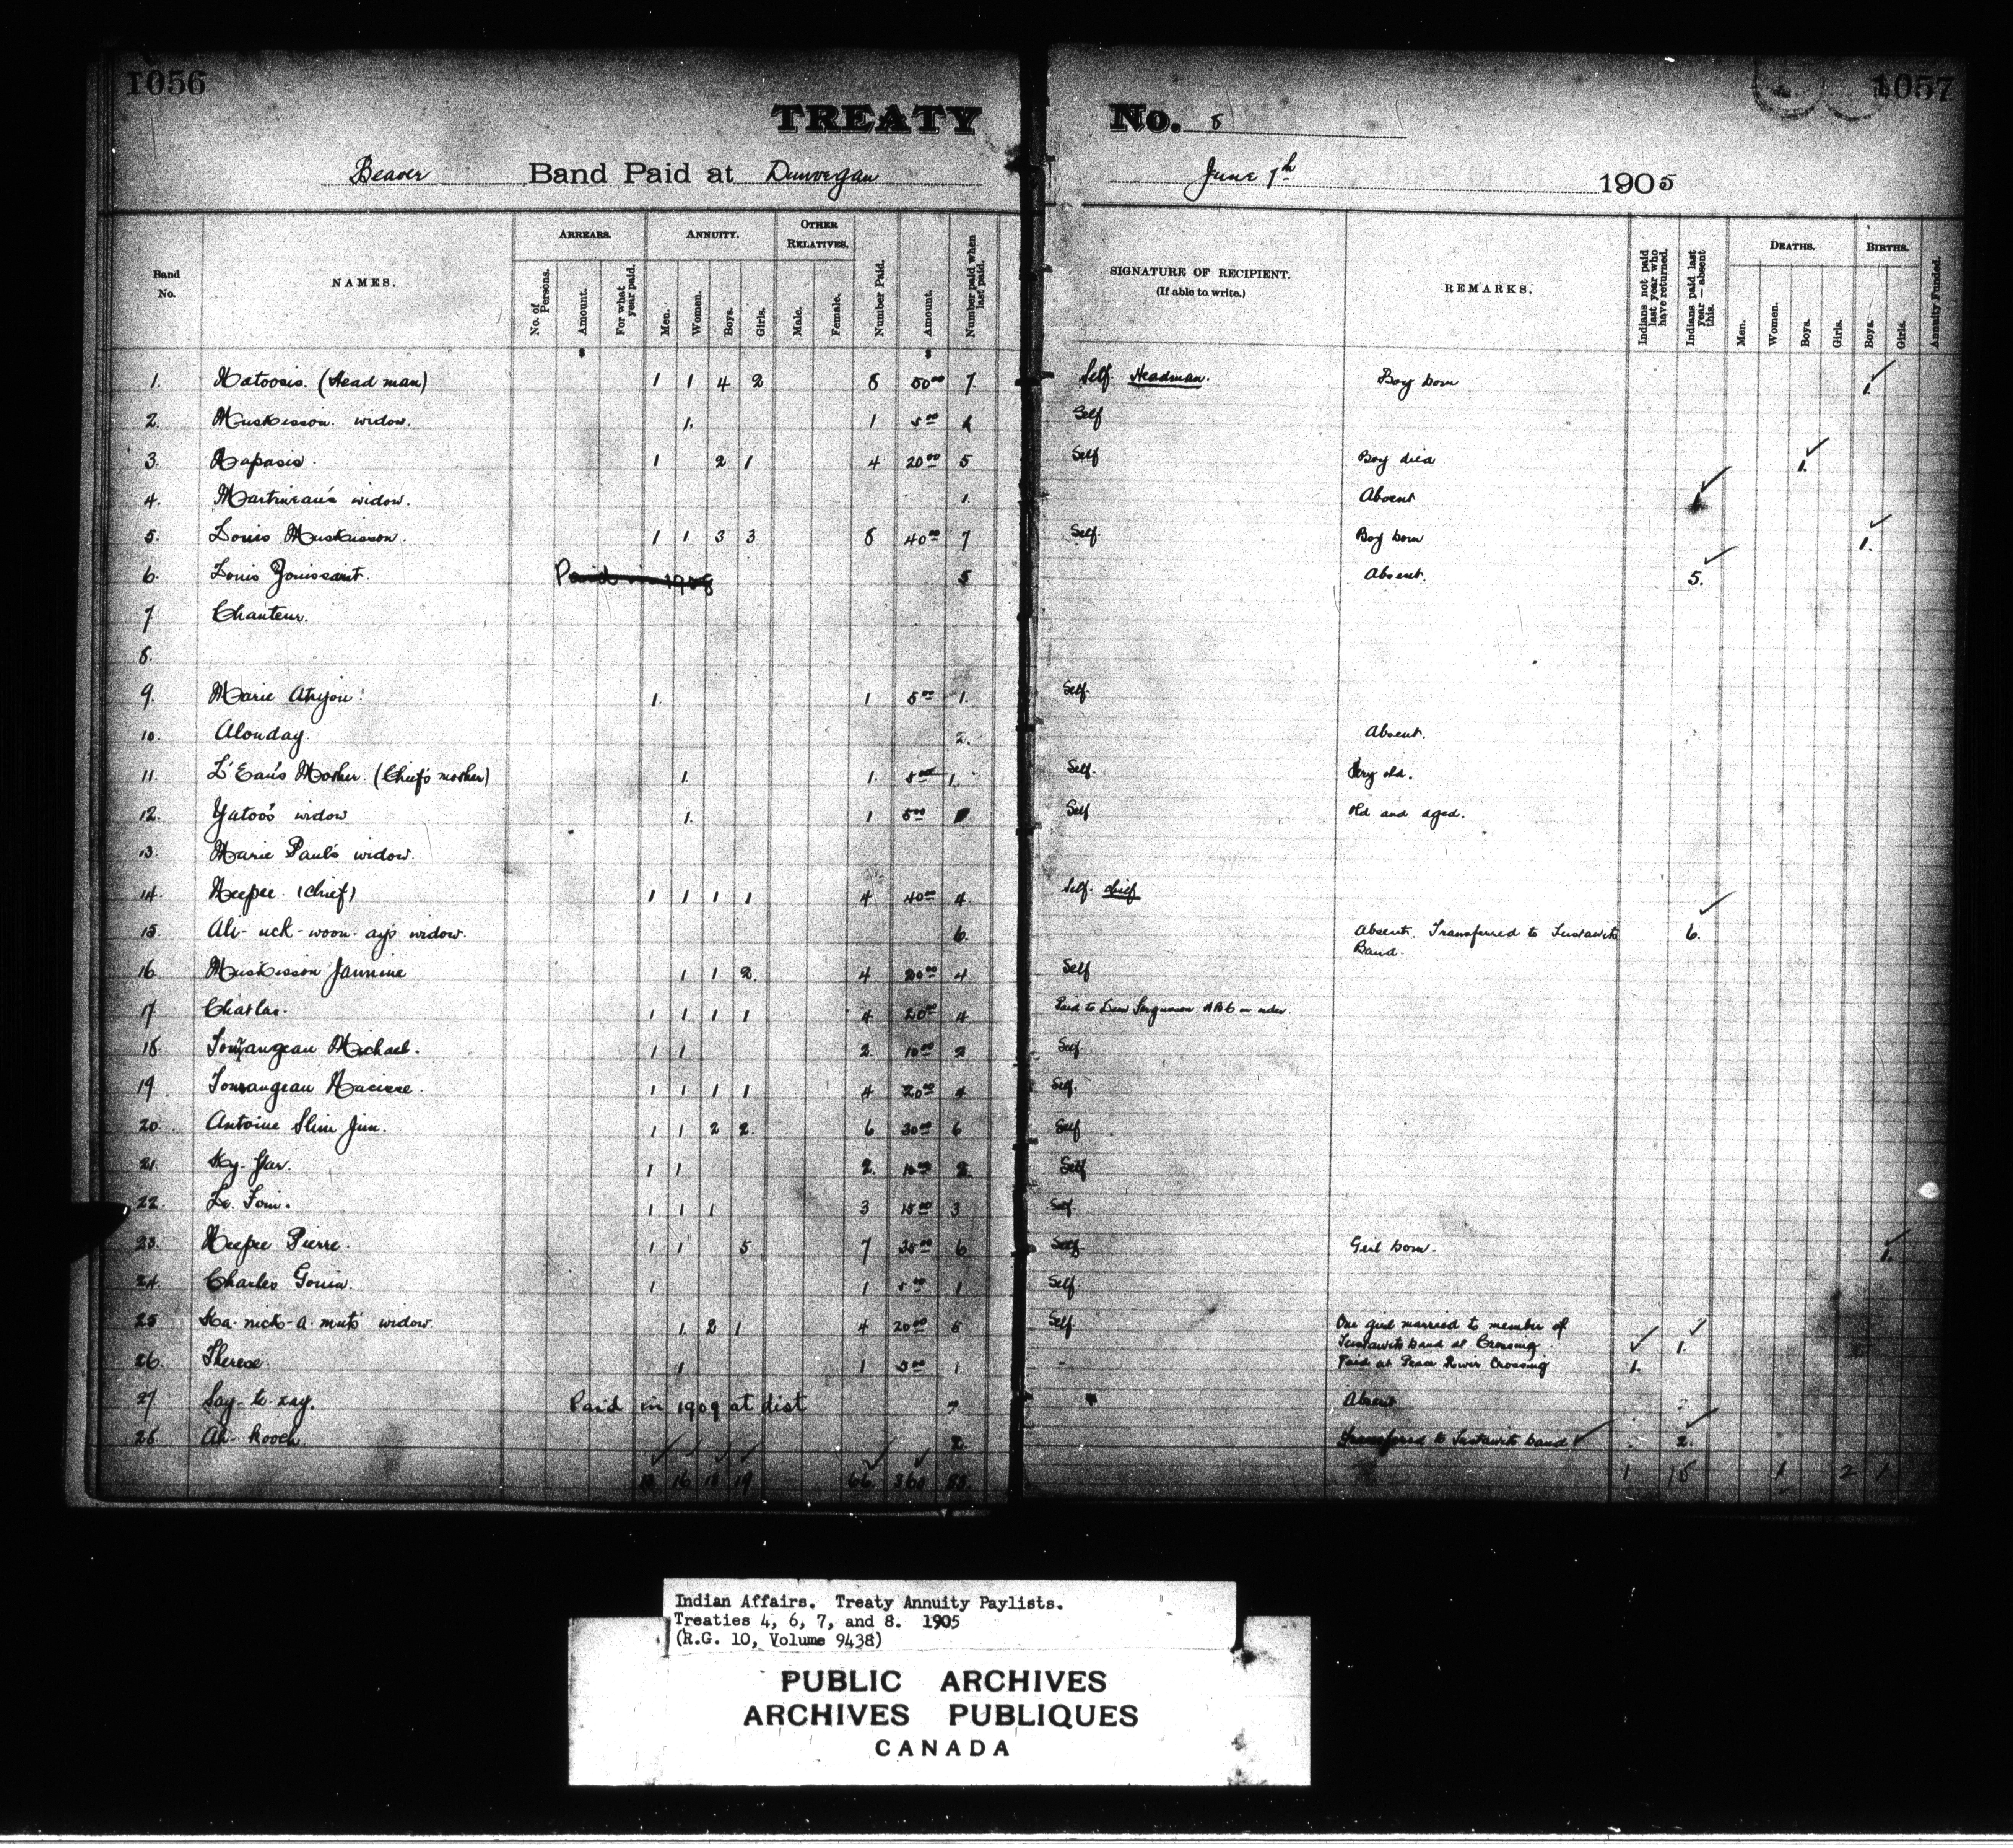 1056
1057
TREATY No. 8
Beaver Band Paid at Dunvegan June 7th 1905
Band No. NAMES. ARREARS. No. of Persons. Amount. For what year paid. ANNUITY. Men. Women. Boys. Girls. OTHER RELATIVES. Male. Female. Number Paid. Amount. Number paid when last paid. SIGNATURE OF RECIPIENT. (If able to write.) REMARKS. Indians not paid last year who have returned. Indians paid last year—absent this. DEATHS. Men. Women. Boys. Girls. BIRTHS. Boys. Girls. Annuity Funded.
$ $
1. Natoosis. (Head man) 1 1 4 2 8 50.00 7. Self. Headman. Boy born 1.
2. Muskisson widow. 1. 1 5.00 1 Self
3. Napasis. 1 2 1 4 20.00 5 Self Boy died 1.
4. Martineau's widow. 1. Absent 1
5. Louis Muskisson. 1 1 3 3 8 40.00 7 Self. Boy born 1.
6. Louis Touissant. Paid in 1908 5 Absent. 5.
7 Chanteur.
8.
9. Marie 1. 1 5.00 1. Self.
10. Alonday. 2. Absent.
11. L'Eau's Mother. (Chief's mother) 1. 1. 5.00 1. Self. Very old.
12. Yatoo's widow 1. 1 5.00 Self Old and aged.
13. Marie Paul's widow.
14. Neepee. (Chief) 1 1 1 1 4 40.00 4. Self. Chief
15. Ali-uck-woon-ay's widow. 6. Absent. Transferred to 6.
Band.
16. Muskisson Jannine 1 1 2. 4 20.00 4 Self
17 Charles. 1 1 1 1 4 20.00 4 Paid to
18. Tourangeau Michael. 1 1 2. 10.00 2 Self.
19. Tourangeau 1 1 1 1 4 20.00 4 Self.
20. Antoine Slim Jim. 1 1 2 2. 6 30.00 6 Self
21. 1 1 2. 10.00 2. Self
22. 1 1 1 3 15.00 3 Self.
23. Neepee Pierre. 1 1 5 7 35.00 6 Self. Girl born. 1.
24. Charles 1 1 5.00 1 Self.
25 Ka-nick-a-mut's widow. 1. 2 1 4 20.00 5 Self. One girl married to member of 1.
band at Crossing.
26. Therese. 1 1 5.00 1 Paid at Peace River Crossing 1.
27 Say-to-zay. Paid in 1909 at dist Absent
28 Ah-kooch. 2. Transferred to band 2.
16 19 66. 360 1 15 1 2 1
Indian Affairs. Treaty Annuity Paylists.
Treaties 4, 6, 7, and 8. 1905
(R.G. 10, Volume 9438)
PUBLIC ARCHIVES
ARCHIVES PUBLIQUES
CANADA